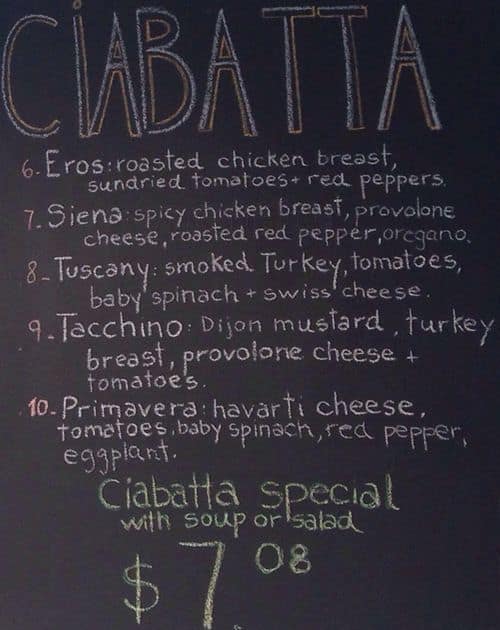 CIABATTA
6-Eros:roasted chicken breast,
sundried tomatoes+ red peppers.
7. Siena:spicy chicken breast, provolone
cheese, roasted red pepper, oregano.
8-Tuscany: smoked Turkey, tomatoes,
baby spinach + swiss cheese.
9.Tacchino: Dijon mustard, turkey
breast, provolone cheese +
tomatoes.
10-Primavera:havarti cheese,
tomatoes, baby spinach, red pepper,
eggplant.
Ciabatta special
with soup or salad
$7.08